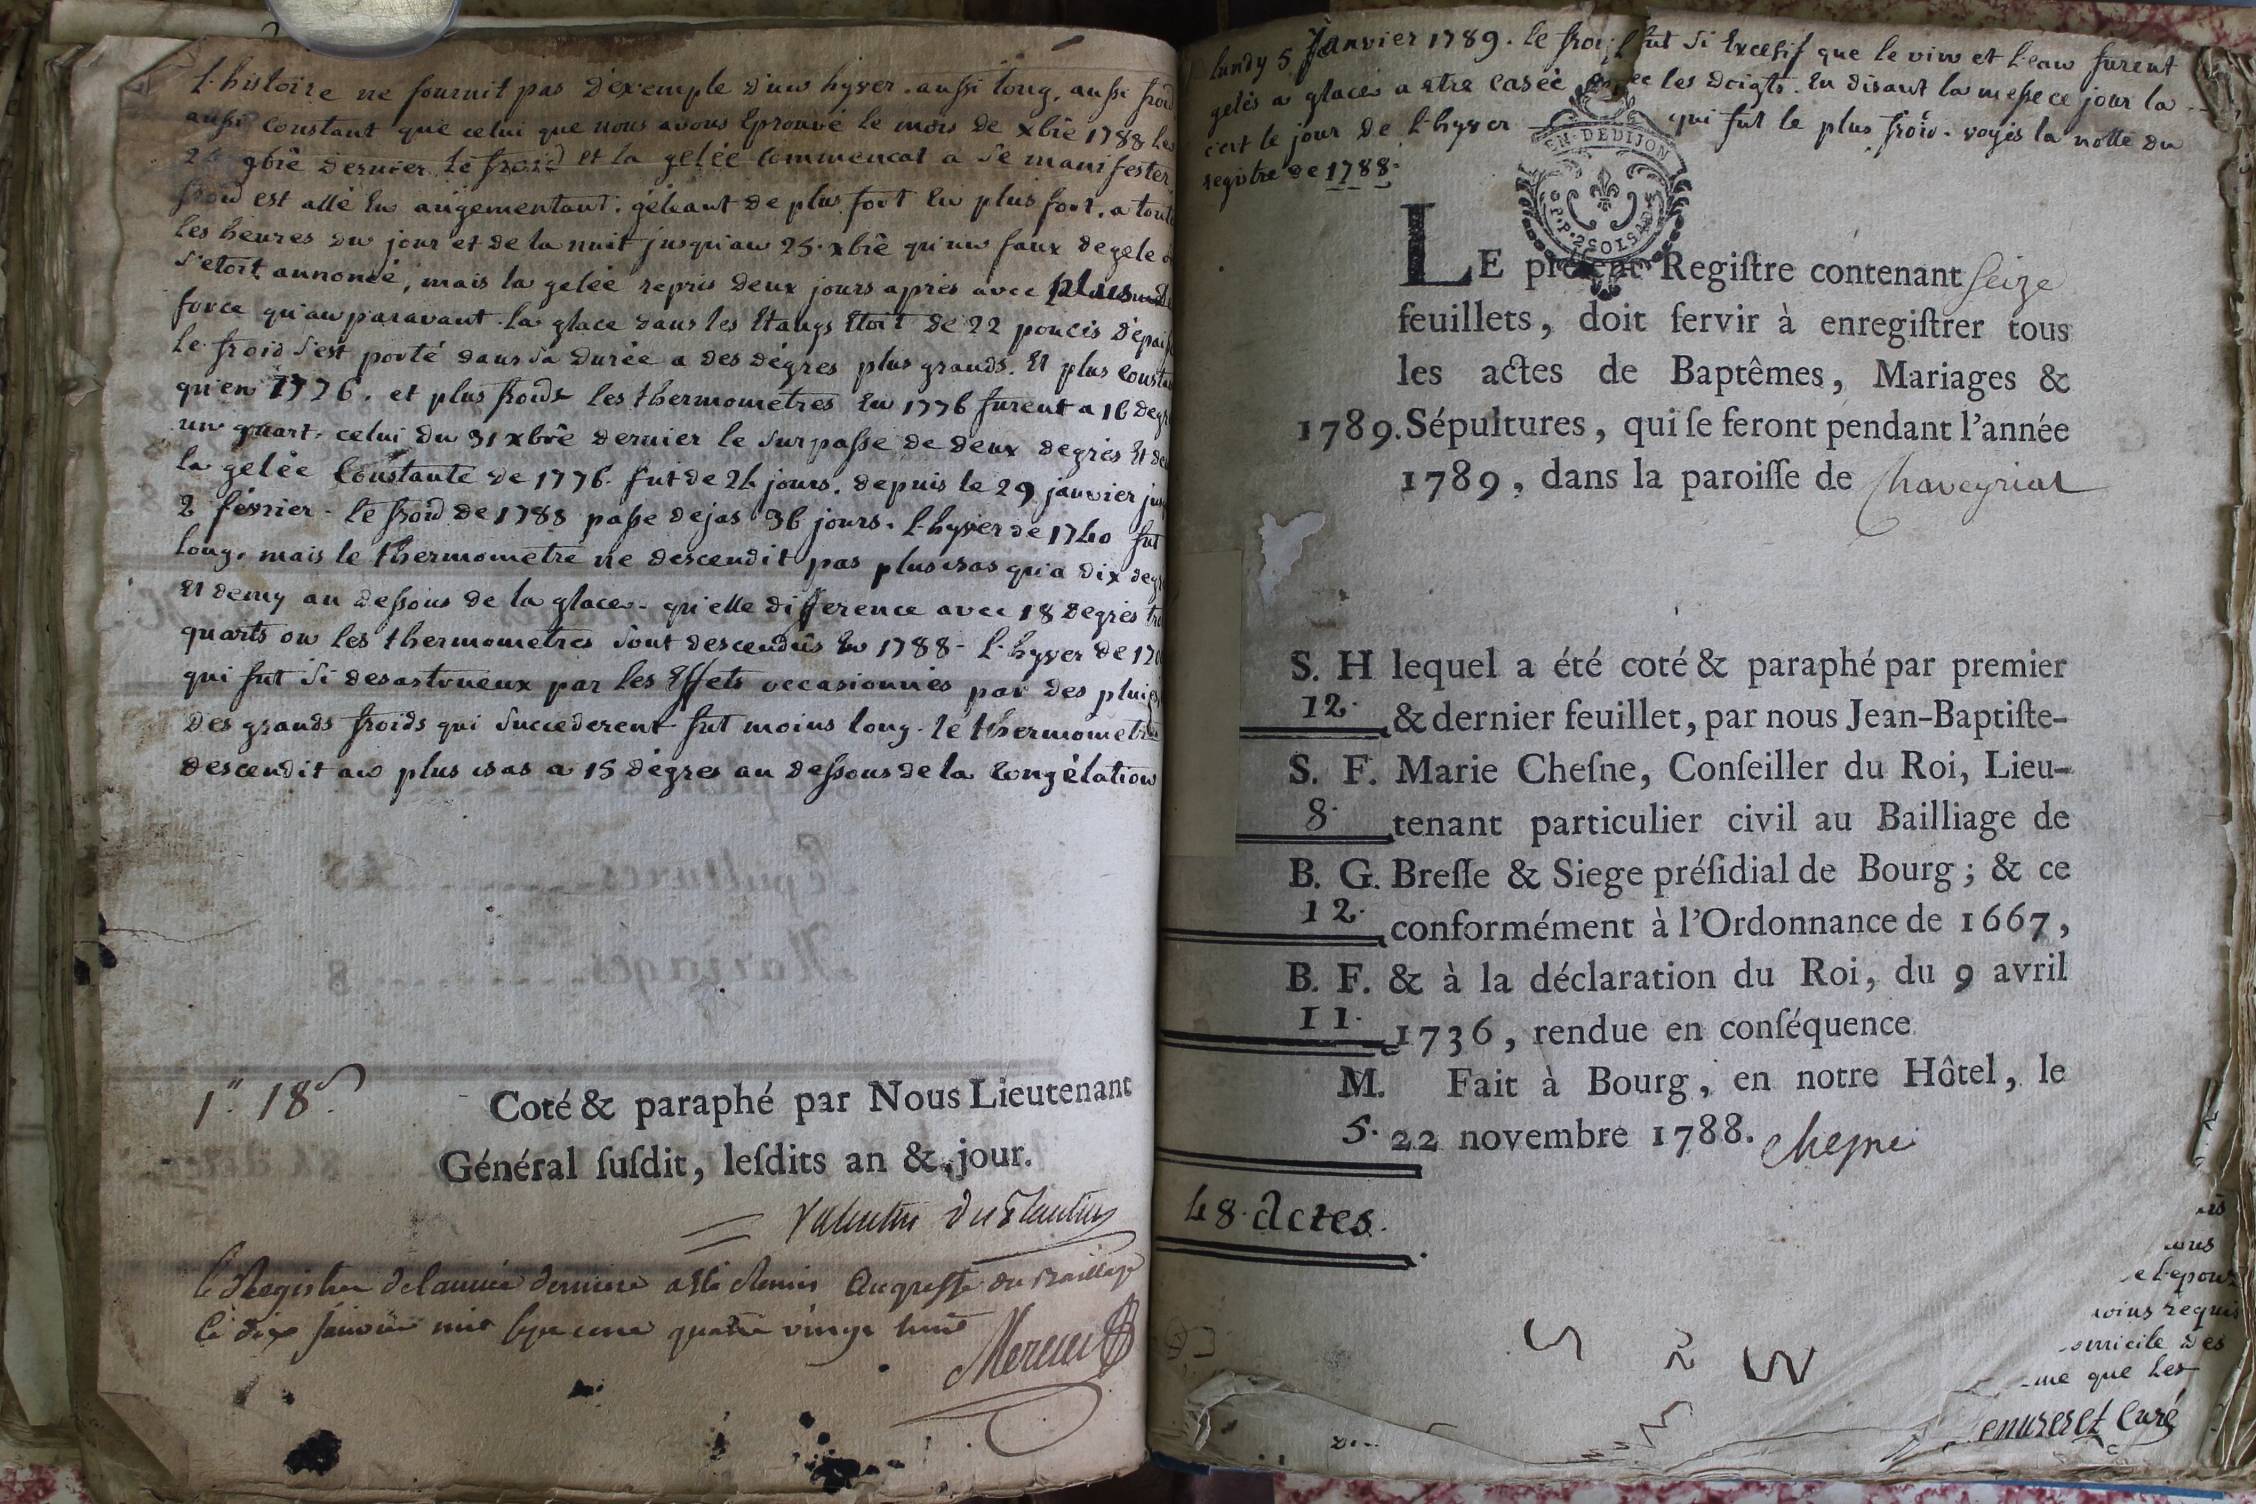 L'histoire ne fournit pas d'exemple d'un hyver. aussi long, aussi froid
aussi constant que celui que nous avons éprouvé le mois de xbre 1788 les
9bre dernier. le froid et la gelée commencat a se manifester.
froid est allé en augementant. géléant de plus fort en plus fort. a toute
les heures du jour et de la nuit jusqu'au 25. xbre qu'un faux degele
s'etoit annoncé, mais la gelée repris deux jours après avec plus
force qu'auparavant. la glace dans les Etangs Etoit de 22 pouces d'epai
le froid s'est porté dans sa durée a des dégres plus grands. Et plus consta
qu'en 1776. et plus froids les thermometres en 1776 furent a 16 degr
un quart. celui du 31 xbre dernier le surpasse de deux degrés Et de
la gelée Constante de 1776. fut de 24 jours. depuis le 29 janvier jus
2 février. le froid de 1788 passe dejas 36 jours. l'hyver de 1740 fut
long. mais le thermometre ne descendit pas plus bas qu'a dix degr
Et demy au dessous de la glace. qu'elle difference avec 18 degrés tro
quarts ou les thermometres sont descendus en 1788. L'hyver de 170
qui fut si desastrueux par les Effets occasionnés par des pluies
des grands froids qui succederent fut moins long. le thermometre
descendit au plus bas a 15 dégres au dessous de la congélation
1.er 18.e
Coté & paraphé par Nous Lieutenant
Général ſuſdit, leſdits an & jour.
Valentin du Plantier
le Registre de l'année derniere a été Remis Au greffe du Bailliage
le dix Janvier mil sept cent quatre vingt huit
Lundy 5 Janvier 1789. le froid fut si Excesif que le vin et l'eau furent
gelés a glace a etre casée avec les doigts. En disant la messe ce jour la
c'est le jour de l'hyver qui fut le plus froid. voyés la notte du
registre de 1788.
GEN. DE DIJON
2 SOLS
LE préſent Regiſtre contenant Seize
feuillets, doit ſervir à enregiſtrer tous
les actes de Baptêmes, Mariages &
1789. Sépultures, qui ſe feront pendant l'année
1789, dans la paroiſſe de Chaveyriat
S. H lequel a été coté & paraphé par premier
12. & dernier feuillet, par nous Jean-Baptiſte-
S. F. Marie Cheſne, Conſeiller du Roi, Lieu-
8. tenant particulier civil au Bailliage de
B. G. Breſſe & Siege préſidial de Bourg; & ce
12. conformément à l'Ordonnance de 1667,
B. F. & à la déclaration du Roi, du 9 avril
11. 1736, rendue en conſéquence
M. Fait à Bourg, en notre Hôtel, le
5. 22 novembre 1788. Chesne
48. Actes.
e l'epoux
oins requis
omicile des
me que les
curé